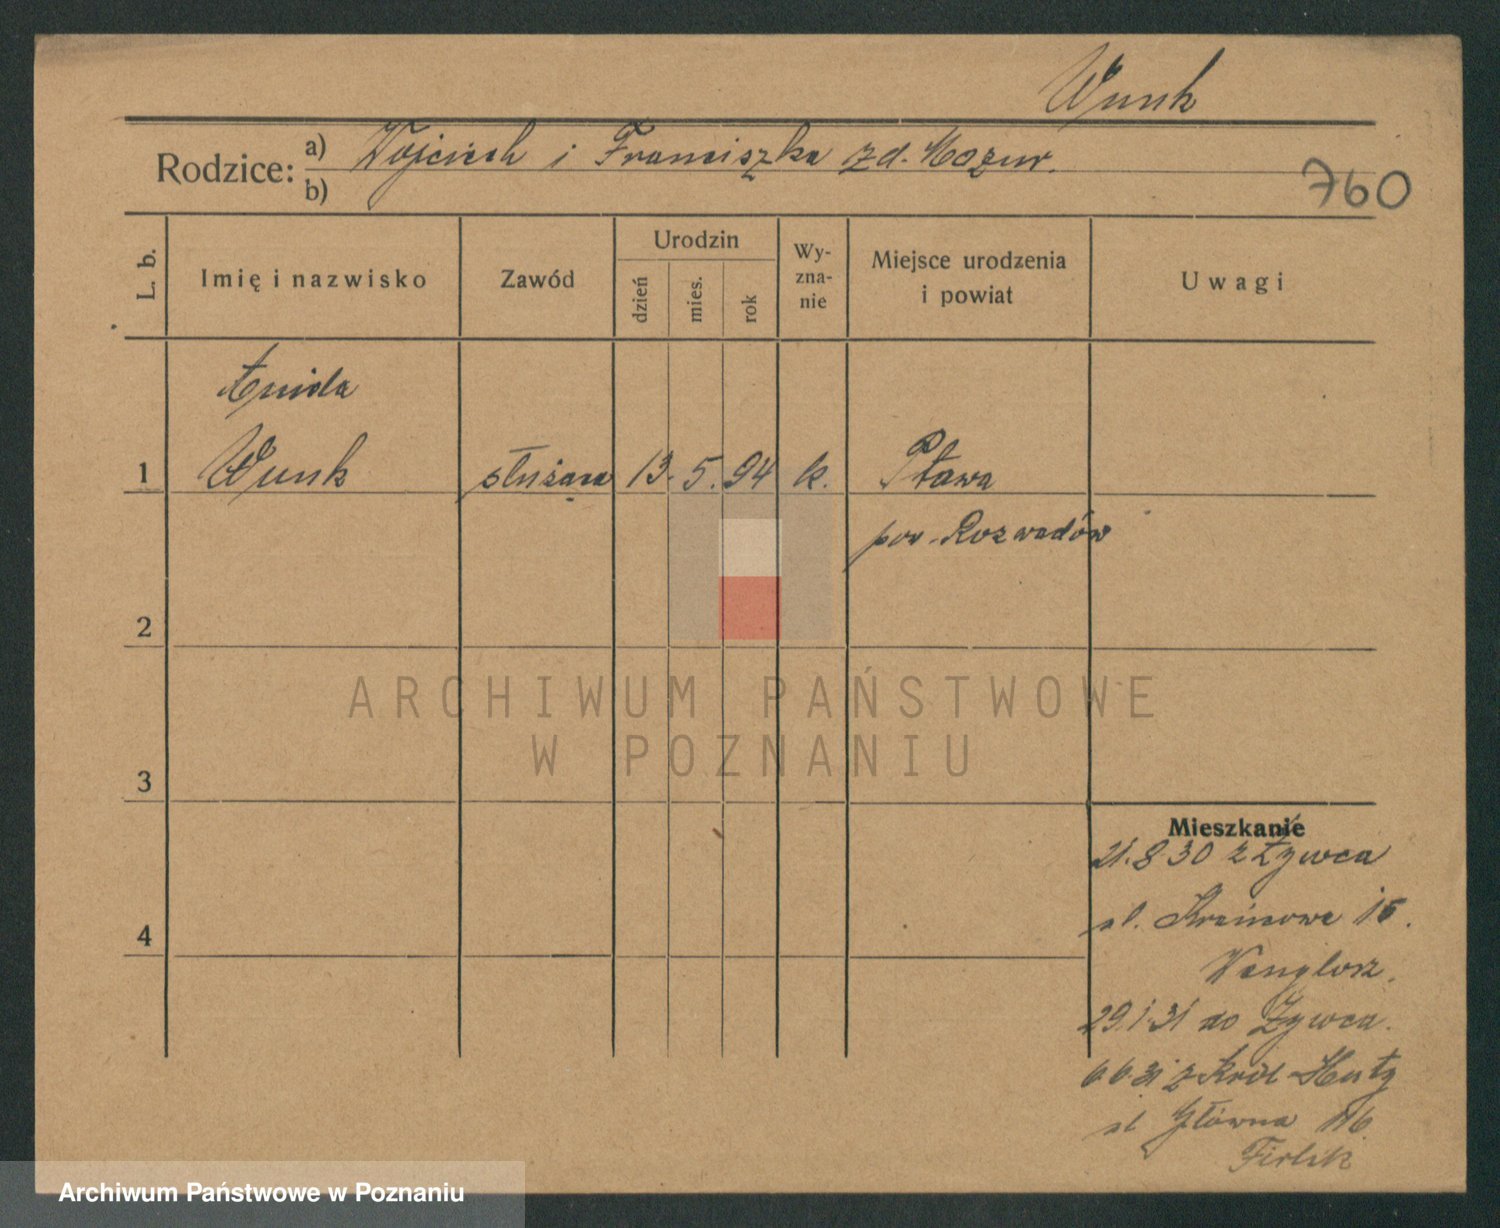 Wunk
Rodzice: a) Wojciech i Franciszka zd. Mozur.
b)
760
L. b.
Imię i nazwisko
Zawód
Urodzin
dzień
mies.
rok
Wy-
zna-
nie
Miejsce urodzenia
i powiat
Uwagi
Aniela
1 Wunk służąca 13. 5. 94 k. Pława
pow. Rozwadów
2
ARCHIWUM PAŃSTWOWE
W POZNANIU
3
Mieszkanie
21.8.30 z Żywca
ul. 15.
4
29.1.31 do Żywca.
6.6.31 z Król Huty
ul Główna
Firlik
Archiwum Państwowe w Poznaniu